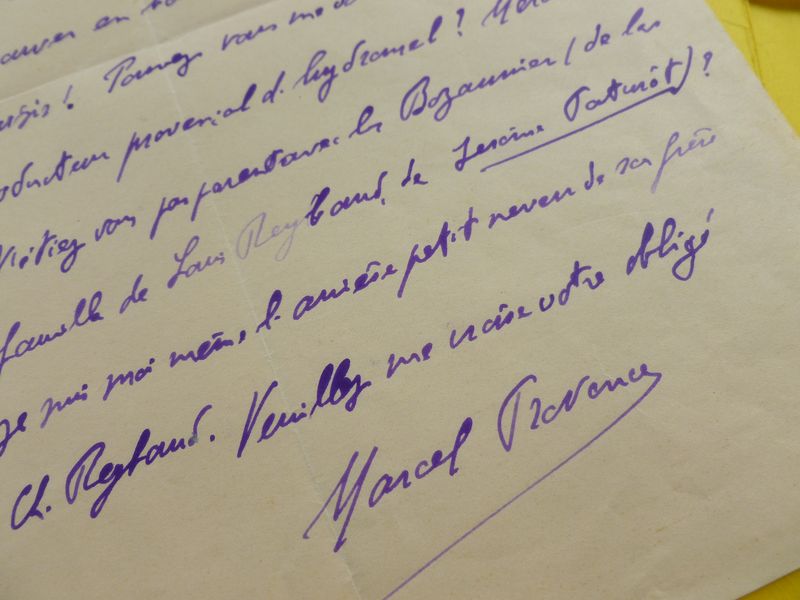 en
! Pouvez vous me
producteur provençal d'hydromel ?
N'étiez vous pas parent avec les Bozaunier (de la
famille de Louis Reybaud, de Jérôme Paturôt) ?
Je suis moi même l'arrière petit neveu de son frère
Ch. Reybaud. Veuillez me croire votre obligé
Marcel Provence